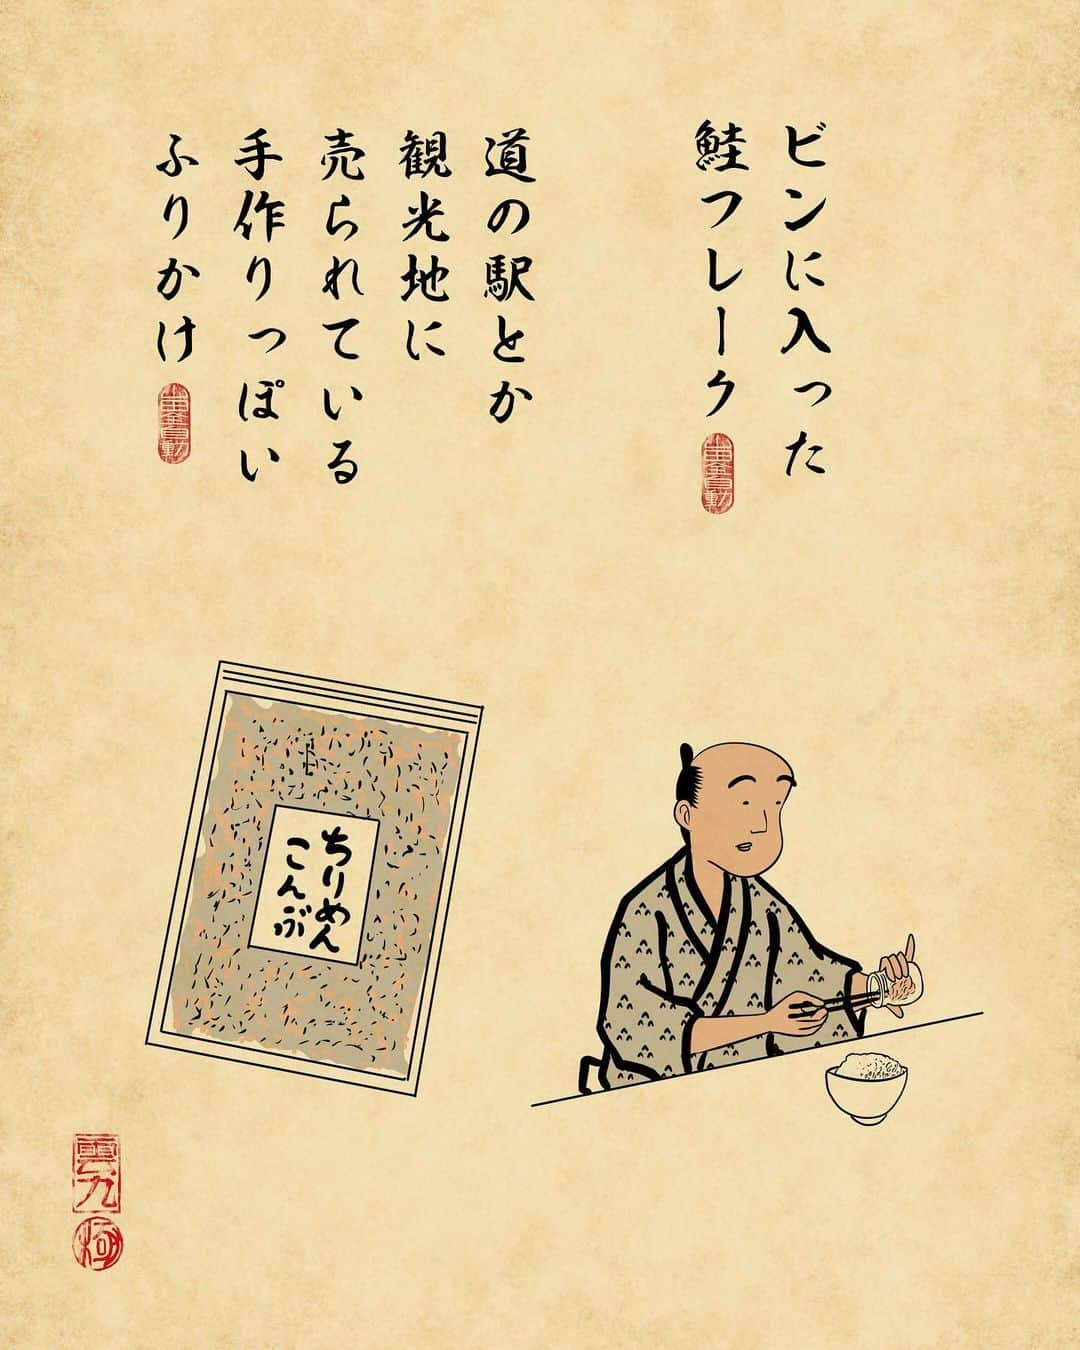 ビンに入った
鮭フレーク
道の駅とか
観光地に
売られている
手作りっぽい
ふりかけ
ちりめん
こんぶ